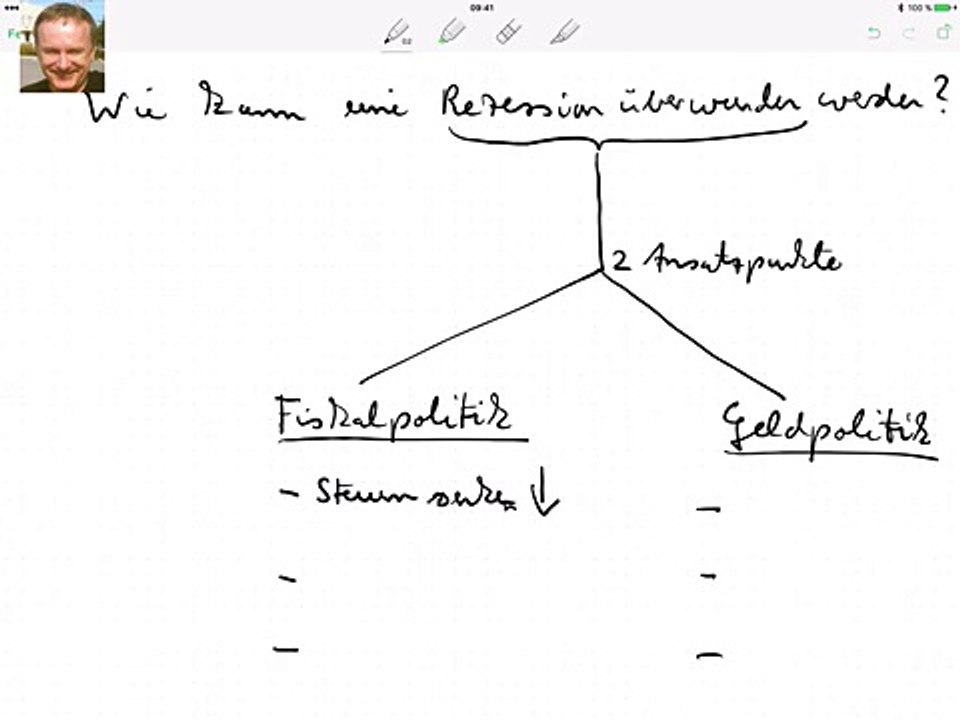 09:41
100 %
Wie kann eine Rezession überwunden werden?
2 Ansatzpunkte
Fiskalpolitik
Geldpolitik
- Steuern senken ↓
-
-
-
-
-